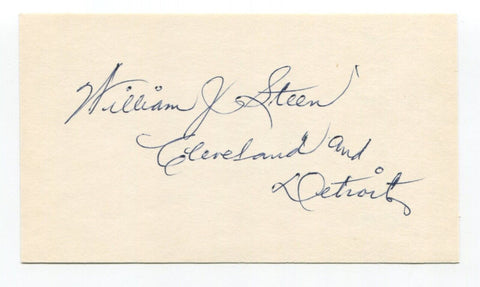 William J Steen
Cleveland and
Detroit